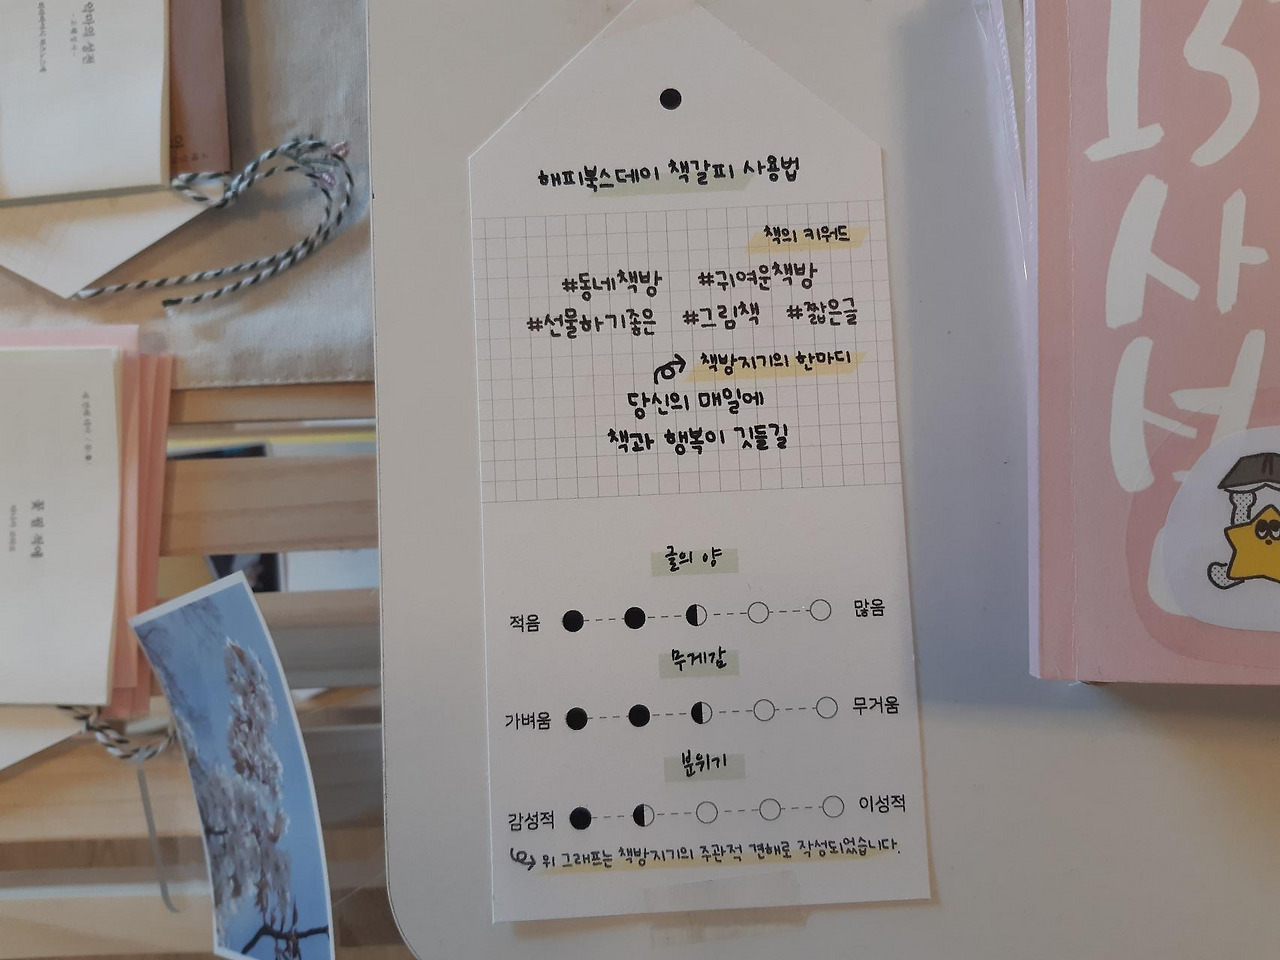 해피북스데이 책갈피 사용법
책의 키워드
#동네책방 #귀여운책방
#선물하기좋은 #그림책 #짧은글
책방지기의 한마디
당신의 매일에
책과 행복이 깃들길
글의 양
적음 많음
무게감
가벼움 무거움
분위기
감성적 이성적
위 그래프는 책방지기의 주관적 견해로 작성되었습니다.
꽃 필 적에